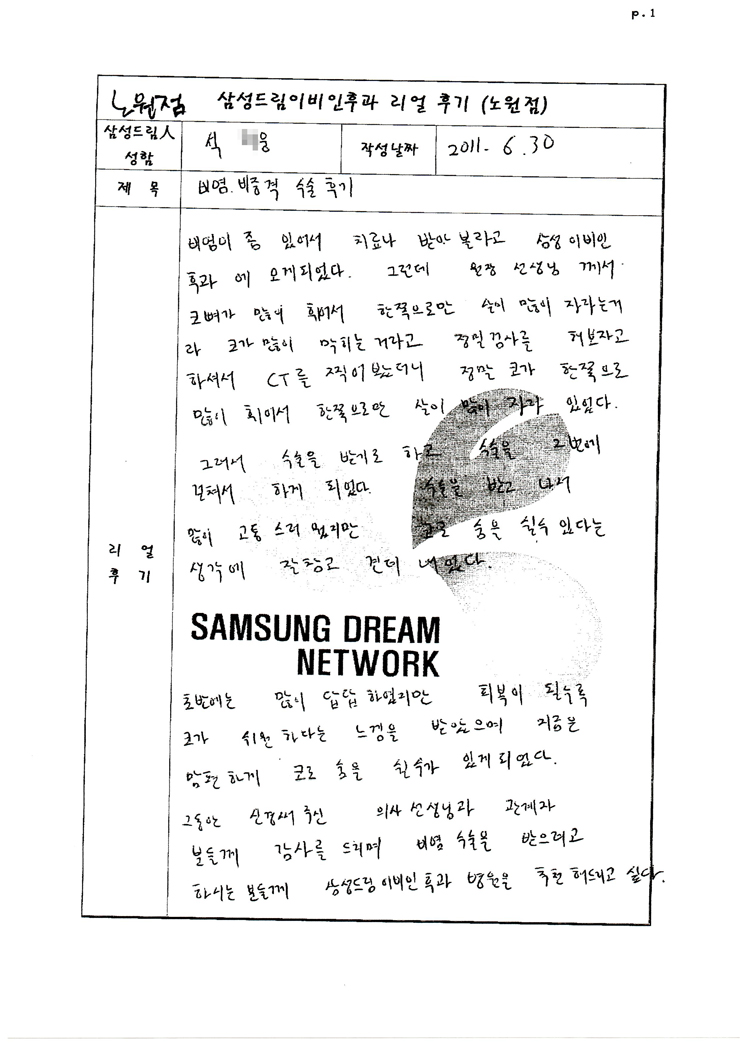 p.1
노원점 삼성드림이비인후과 리얼 후기 (노원점)
삼성드림人
성함
석 웅
작성날짜
2011. 6. 30
제 목
비염.비중격 수술 후기
리 얼
후 기
비염이 좀 있어서 치료나 받아 볼라고 삼성이비인
후과 에 오게되었다. 그런데 원장 선생님 께서
코뼈가 많이 휘어서 한쪽으로만 살이 많이 자라는거
라 코가 많이 막히는 거라고 정밀검사를 해보자고
하셔서 CT를 찍어 봤더니 정말 코가 한쪽으로
많이 휘어서 한쪽으로만 살이 많이 자라 있었다.
그래서 수술을 받기로 하고 수술을 2번에
걸쳐서 하게 되었다. 수술을 받고 나서
많이 고통 스러 웠지만 코로 숨을 쉴수 있다는
생각에 잘참고 견뎌 내었다.
SAMSUNG DREAM
NETWORK
초반에는 많이 답답 하였지만 회복이 될수록
코가 쉬원 하다는 느낌을 받았으며 지금은
암편하게 코로 숨을 쉴수가 있게 되었다.
그동안 신경써 주신 의사 선생님과 관계자
분들께 감사를 드리며 비염 수술을 받으려고
하시는 분들께 삼성드림 이비인 후과 병원을 추천 해드리고 싶다.